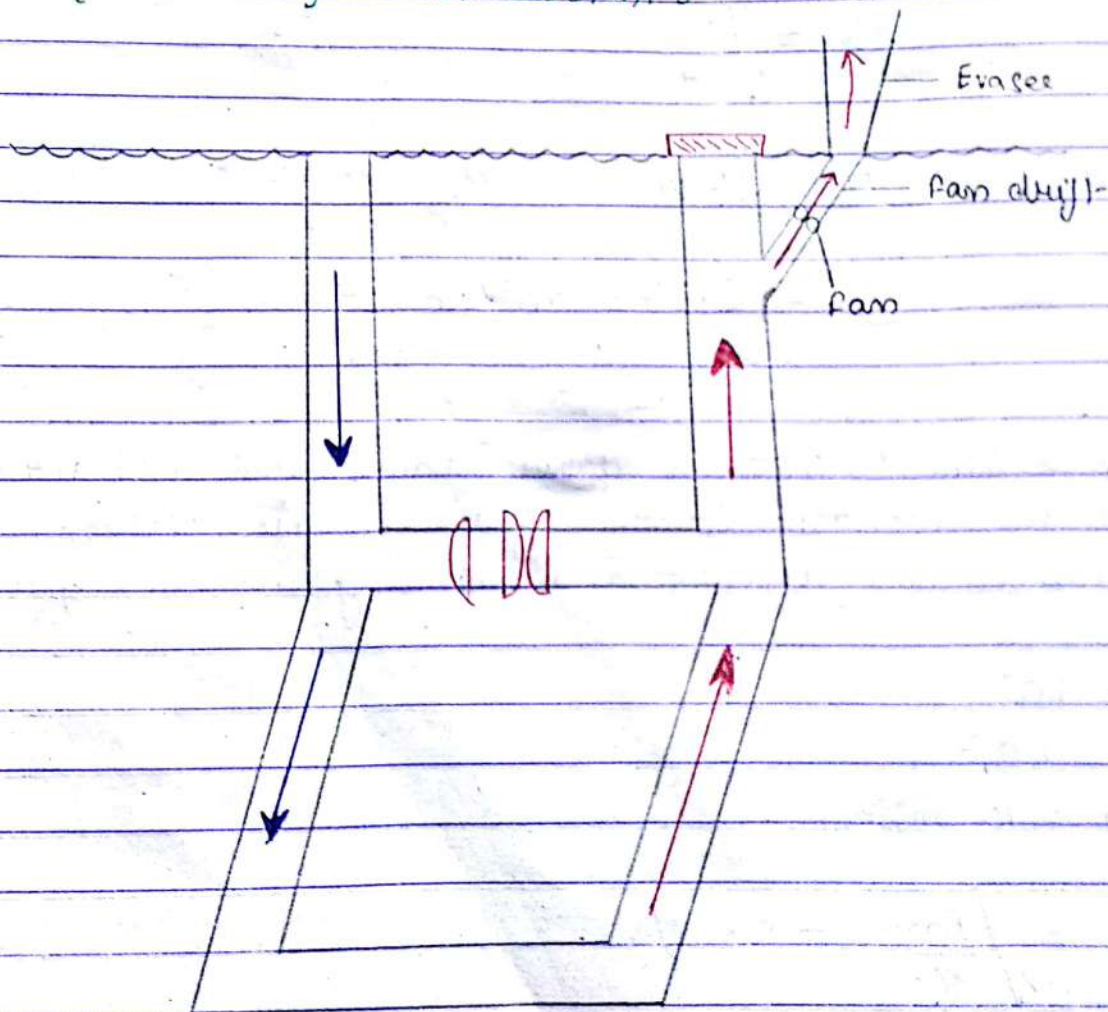 Evasee
Fan drift
Fan